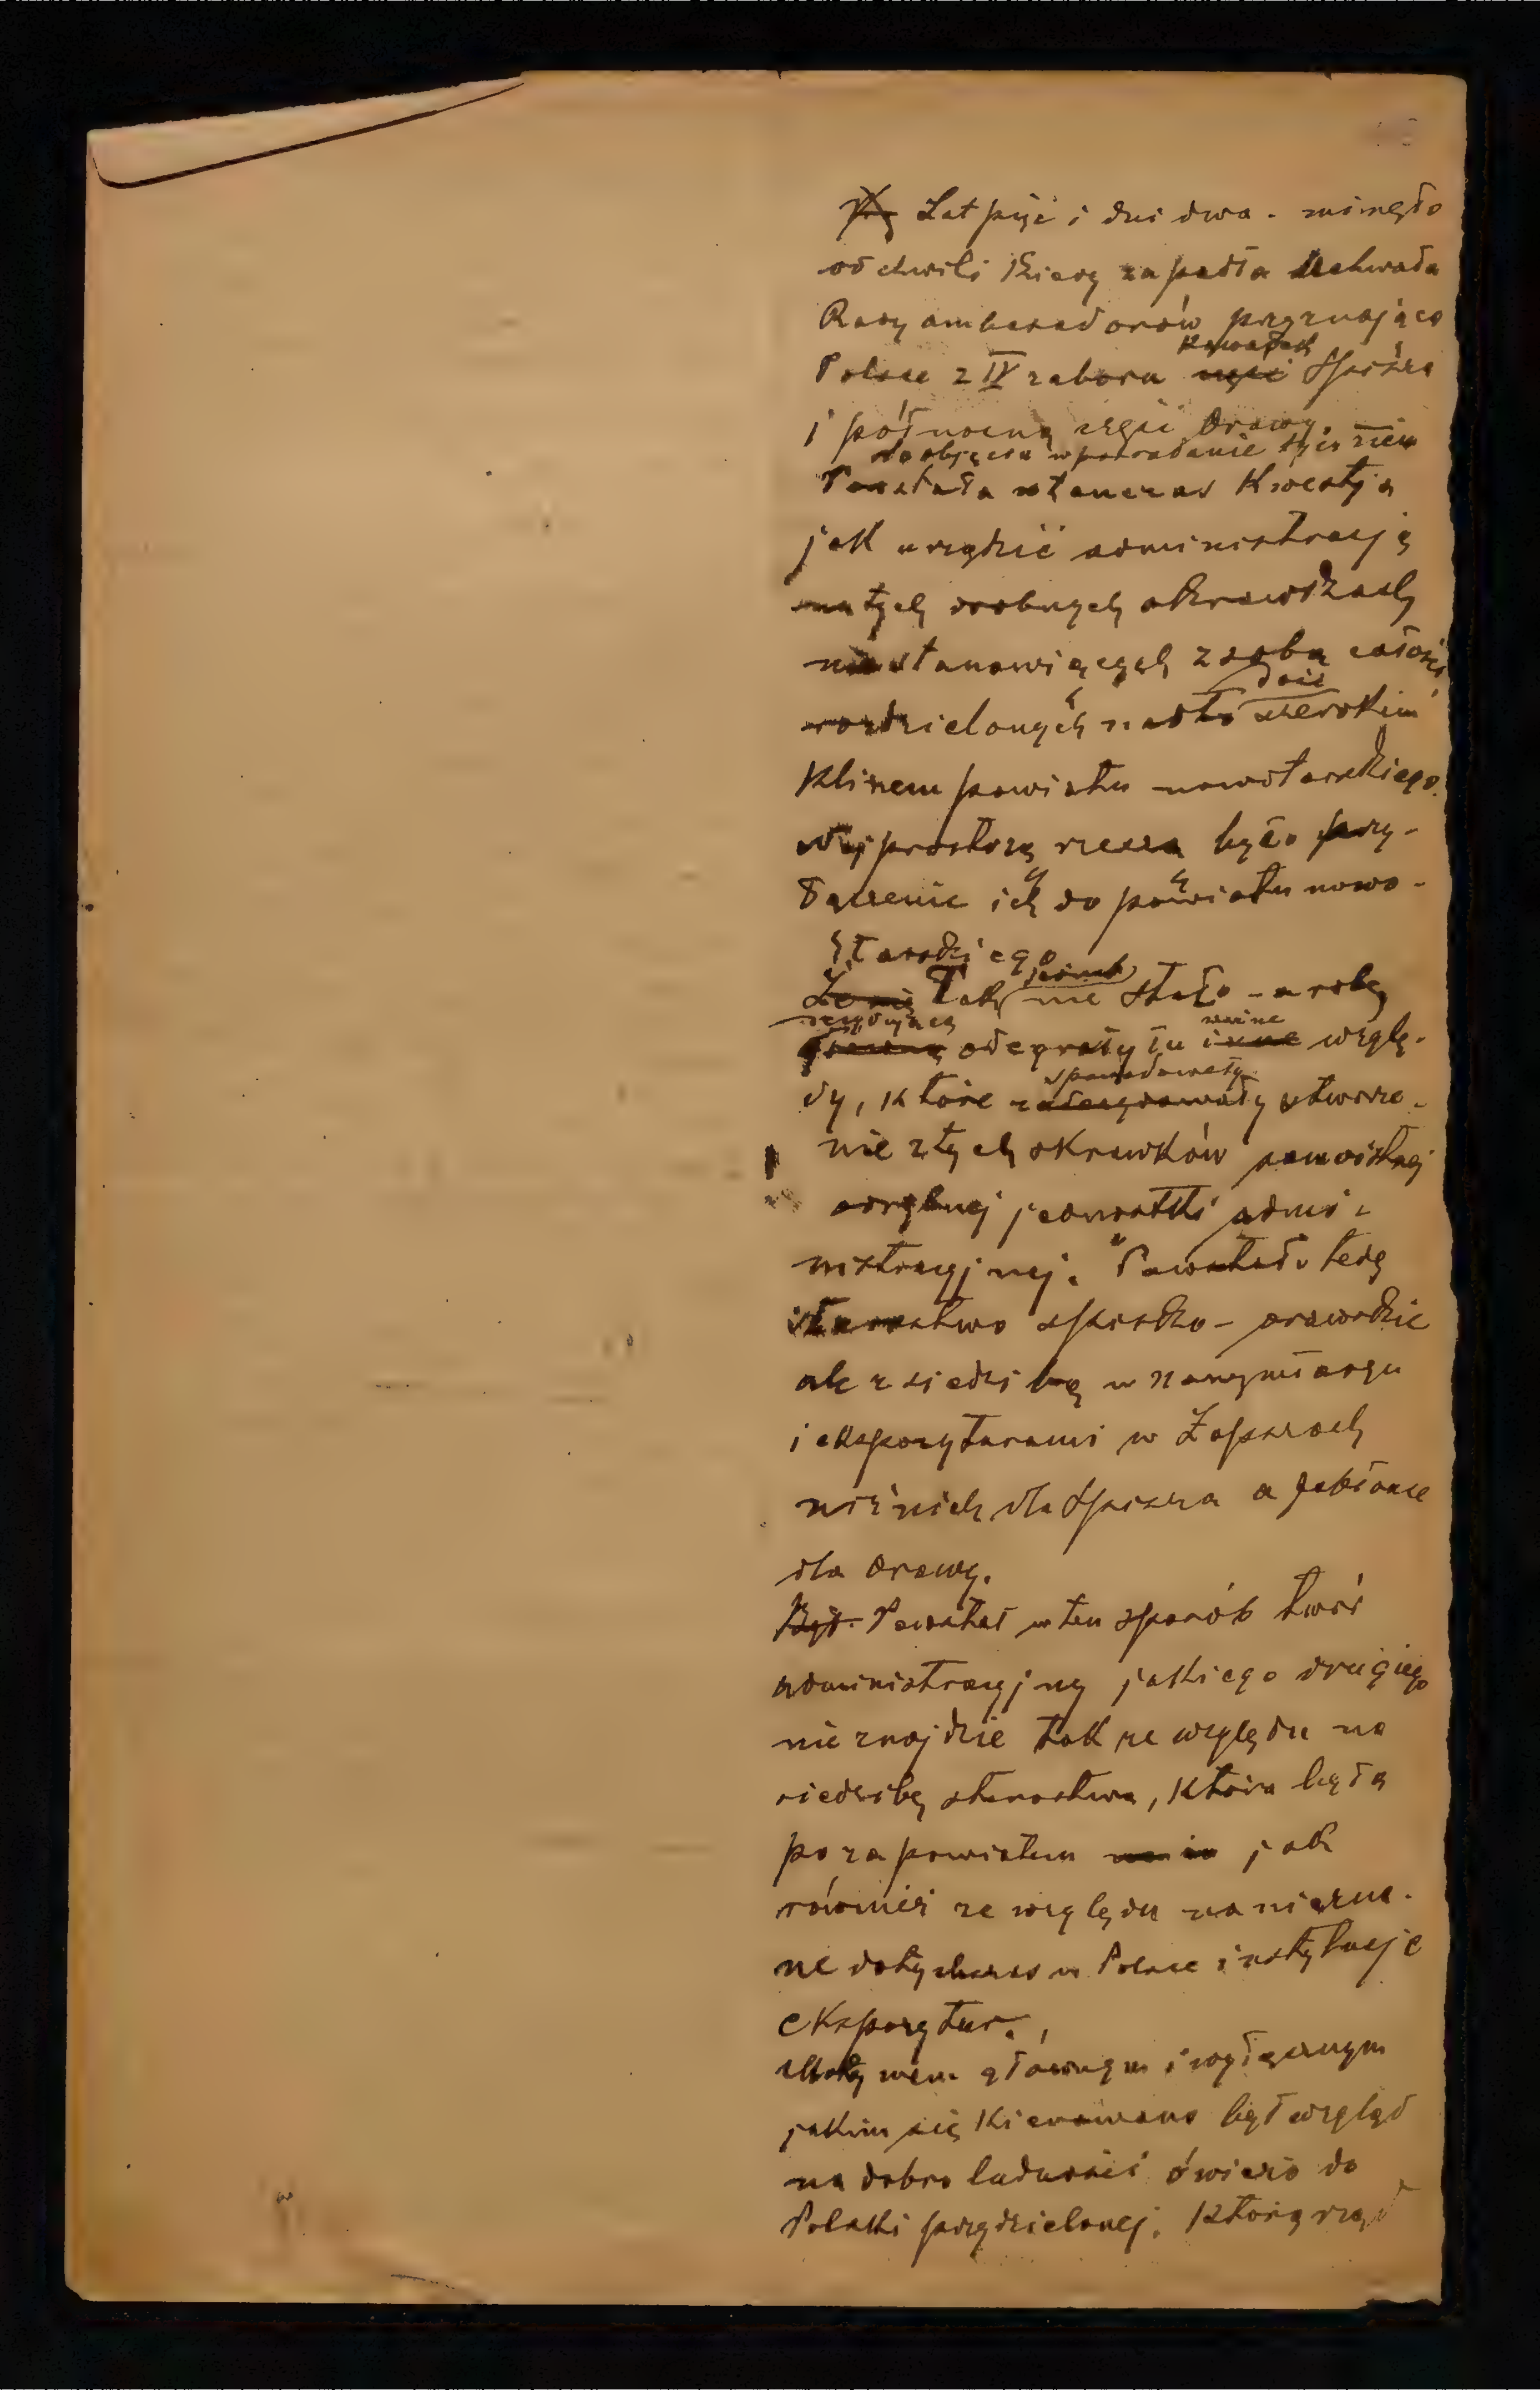 Lat pięć i dni dwa - minęło
od chwili kiedy zapadła uchwała
Rady ambasadorów przyznająca
kawałek
Polsce z IV zaboru część Spisza
i północną część Orawy.
do objęcia w posiadanie tych ziem
Powstała wtenczas kwestja
jak urządzić administrację
na tych drobnych okrawkach
nie stanowiących z sobą całości
dość
rozdzielonych nadto szerokim
klinem powiatu nowotarskiego.
Najprostszą rzeczą było przy-
łączenie ich do powiatu nowo-
tarskiego
jednak
Tak nie stało - a rolę
decydującą ważne
odegrały tu inne wzglę-
spowodowały
dy, które zadecydowały utworze-
nie z tych skrawków samoistnej
odrębnej jednostki admi-
nistracyjnej. Powstało tedy
starostwo spisko-orawskie
ale z siedzibą w Nowymtargu
i ekspozyturami w Łapszach
niżnich dla Spisza a Jabłonce
dla Orawy.
Był Powstał w ten sposób twór
administracyjny jakiego drugiego
nie znajdzie tak ze względu na
siedzibę starostwa, która była
poza powiatem jak
również ze względu na niezna-
ne dotychczas w Polsce instytucje
ekspozytur.
Motywem głównym i wyłącznym
jakim się kierowano był wzgląd
na dobro ludności świeżo do
Polski przydzielonej, którą rząd